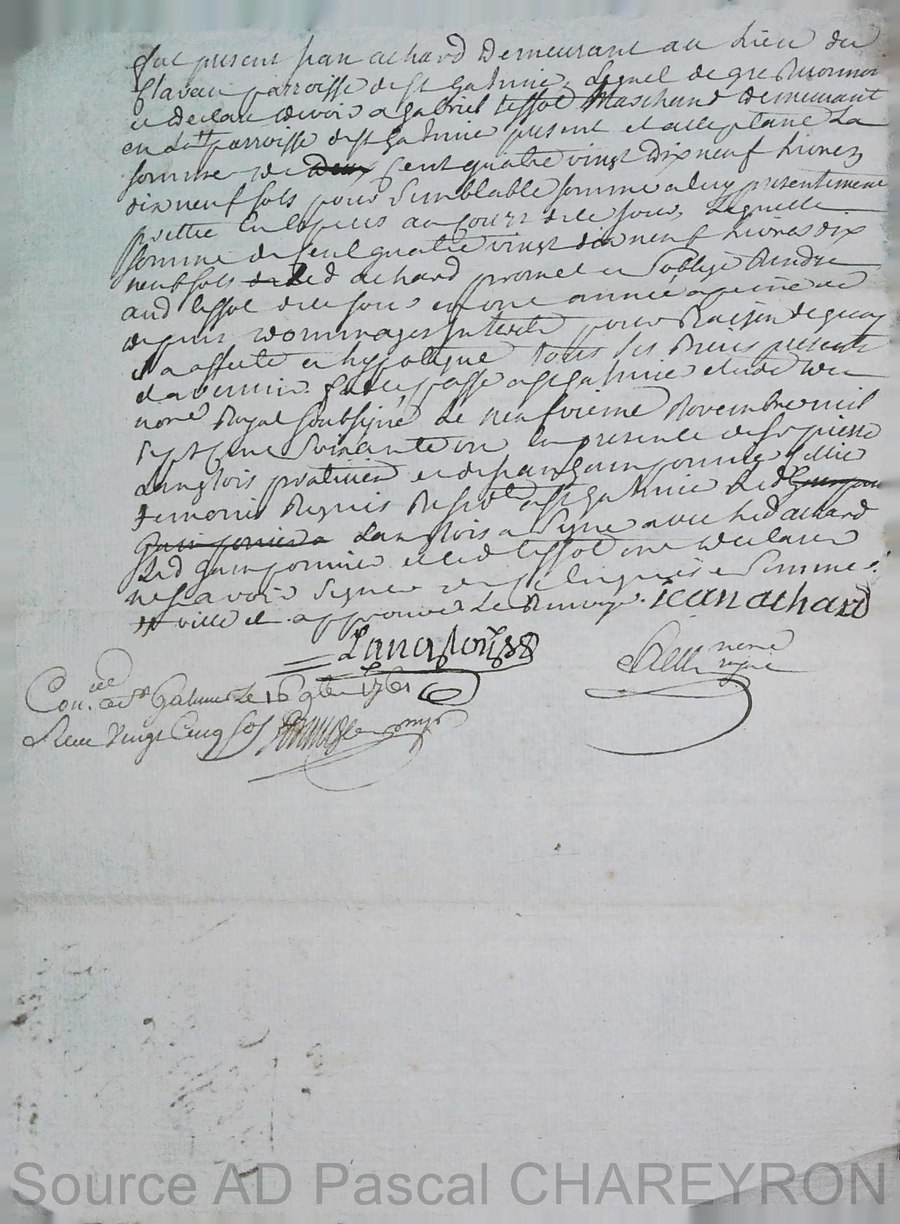 fut present jean achard Demeurant au Lieu du
parroisse de st Galmier, Lequel de gre
a Declare devoir a Gabriel tessot Marchand Demeurant
en parroisse de st Galmier present et acceptant La
somme de deux Cent quatre vingt Dix neuf Livres
dix neuf sols pour Semblable somme a luy presentement
prettée En espèces au Cours de ce jour, Laquelle
somme de Cent quatre vingt dix neuf Livres dix
neuf sols Led achard promet et s'oblige Rendre
aud tessot de ce jour en une année a peine de
depens Dommages Interets pour Raison de quoy
il a affecté et hypotequé tous ses Biens presents
et avenir. fait et passé a st Galmier etude du
nore Royal soubsigné Le neufvieme Novembre mil
sept cent Soixante un En presence de sr pierre
Langlois praticien et de jean
temoins Requis st Galmier Led
Langlois a Signé avec Led achard
Led et led tessot ont Declaré
ne sçavoir Signer de ce Enquis et Sommé.
ville et approuvé Le Renvoye. jean achard
Langlois
nore
royal
Con. a st Galmier Le 16 9bre 1761
Reçu Vingt Cinq sols
Source AD Pascal CHAREYRON